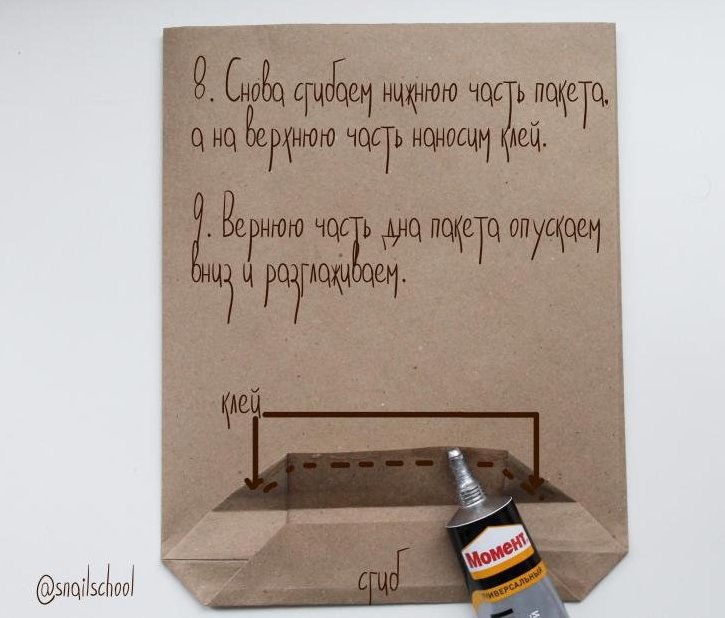 8. Снова сгибаем нижнюю часть пакета,
а на верхнюю часть наносим клей.
9. Вернюю часть дна пакета опускаем
вниз и разглаживаем.
клей
Момент
УНИВЕРСАЛЬНЫЙ
сгиб
@snailschool